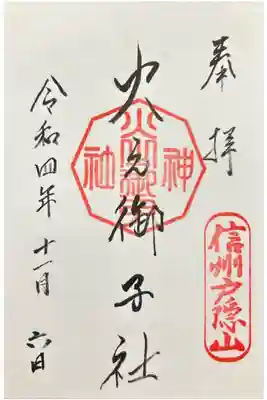 奉拝
信州戸隠山
火之御子社
神社
令和四年十一月六日